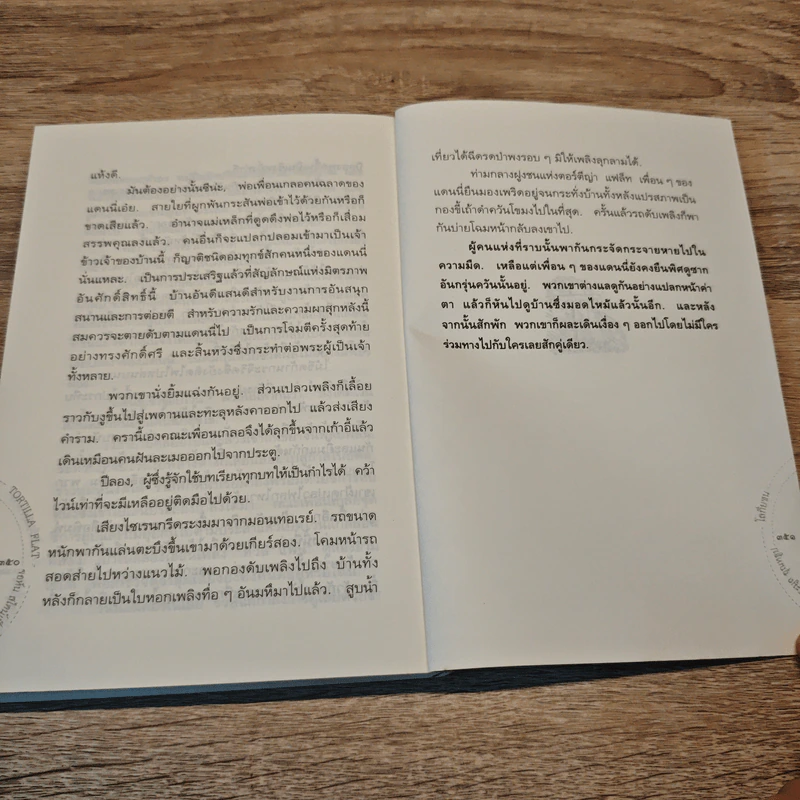 แห้งดี.
มันต้องอย่างนั้นซีน่ะ, พ่อเพื่อนเกลอคนฉลาดของ
แดนนี่เอ๋ย. สายใยที่ผูกพันกระสันพ่อเข้าไว้ด้วยกันหรือก็
ขาดเสียแล้ว. อำนาจแม่เหล็กที่ดูดดึงพ่อไว้หรือก็เสื่อม
สรรพคุณลงแล้ว. คนอื่นก็จะแปลกปลอมเข้ามาเป็นเจ้า
ข้าวเจ้าของบ้านนี้ ก็ญาติชนิดอมทุกข์สักคนหนึ่งของแดนนี่
นั่นแหละ. เป็นการประเสริฐแล้วที่สัญลักษณ์แห่งมิตรภาพ
อันศักดิ์สิทธิ์นี้ บ้านอันดีแสนดีสำหรับงานการอันสนุก
สนานและการต่อยตี สำหรับความรักและความผาสุกหลังนี้
สมควรจะตายดับตามแดนนี่ไป เป็นการโจมตีครั้งสุดท้าย
อย่างทรงศักดิ์ศรี และสิ้นหวังซึ่งกระทำต่อพระผู้เป็นเจ้า
ทั้งหลาย.
พวกเขานั่งยิ้มแฉ่งกันอยู่. ส่วนเปลวเพลิงก็เลื้อย
ราวกับงูขึ้นไปสู่เพดานและทะลุหลังคาออกไป แล้วส่งเสียง
คำราม. ครานี้เองคณะเพื่อนเกลอจึงได้ลุกขึ้นจากเก้าอี้แล้ว
เดินเหมือนคนฝันละเมอออกไปจากประตู.
ปีลอง, ผู้ซึ่งรู้จักใช้บทเรียนทุกบทให้เป็นกำไรได้ คว้า
ไวน์เท่าที่จะมีเหลืออยู่ติดมือไปด้วย.
เสียงไซเรนกรีดระงมมาจากมอนเทอเรย์. รถขนาด
หนักพากันแล่นตะบึงขึ้นเขามาด้วยเกียร์สอง. โคมหน้ารถ
สอดส่ายไปหว่างแนวไม้. พอกองดับเพลิงไปถึง บ้านทั้ง
หลังก็กลายเป็นใบหอกเพลิงทื่อ ๆ อันมหึมาไปแล้ว. สูบน้ำ
TORTILLA FLAT
๓๕๐
เที่ยวได้ฉีดรดป่าพงรอบ ๆ มิให้เพลิงลุกลามได้.
ท่ามกลางฝูงชนแห่งตอร์ตีญ่า แฟล็ท เพื่อน ๆ ของ
แดนนี่ยืนมองเพริดอยู่จนกระทั่งบ้านทั้งหลังแปรสภาพเป็น
กองขี้เถ้าดำควันโขมงไปในที่สุด. ครั้นแล้วรถดับเพลิงก็พา
กันบ่ายโฉมหน้ากลับลงเขาไป.
ผู้คนแห่งที่ราบนั้นพากันกระจัดกระจายหายไปใน
ความมืด. เหลือแต่เพื่อน ๆ ของแดนนี่ยังคงยืนพิศดูซาก
อันกรุ่นควันนั้นอยู่. พวกเขาต่างแลดูกันอย่างแปลกหน้าค่า
ตา แล้วก็หันไปดูบ้านซึ่งมอดไหม้แล้วนั้นอีก. และหลัง
จากนั้นสักพัก พวกเขาก็ผละเดินเรื่อง ๆ ออกไปโดยไม่มีใคร
ร่วมทางไปกับใครเลยสักคู่เดียว.
โลกียชน
๓๕๑